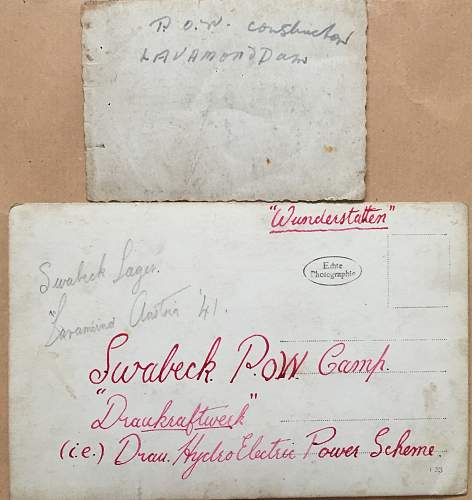 P.O.W. construction
LAVAMOND Dam
"Wunderstatten"
Echte
Photographie
Swabeck Lager.
Lavamund Austria '41.
Swabeck P.O.W. Camp.
"Draukraftwerk"
(i.e.) Drau. HydroElectric Power Scheme.